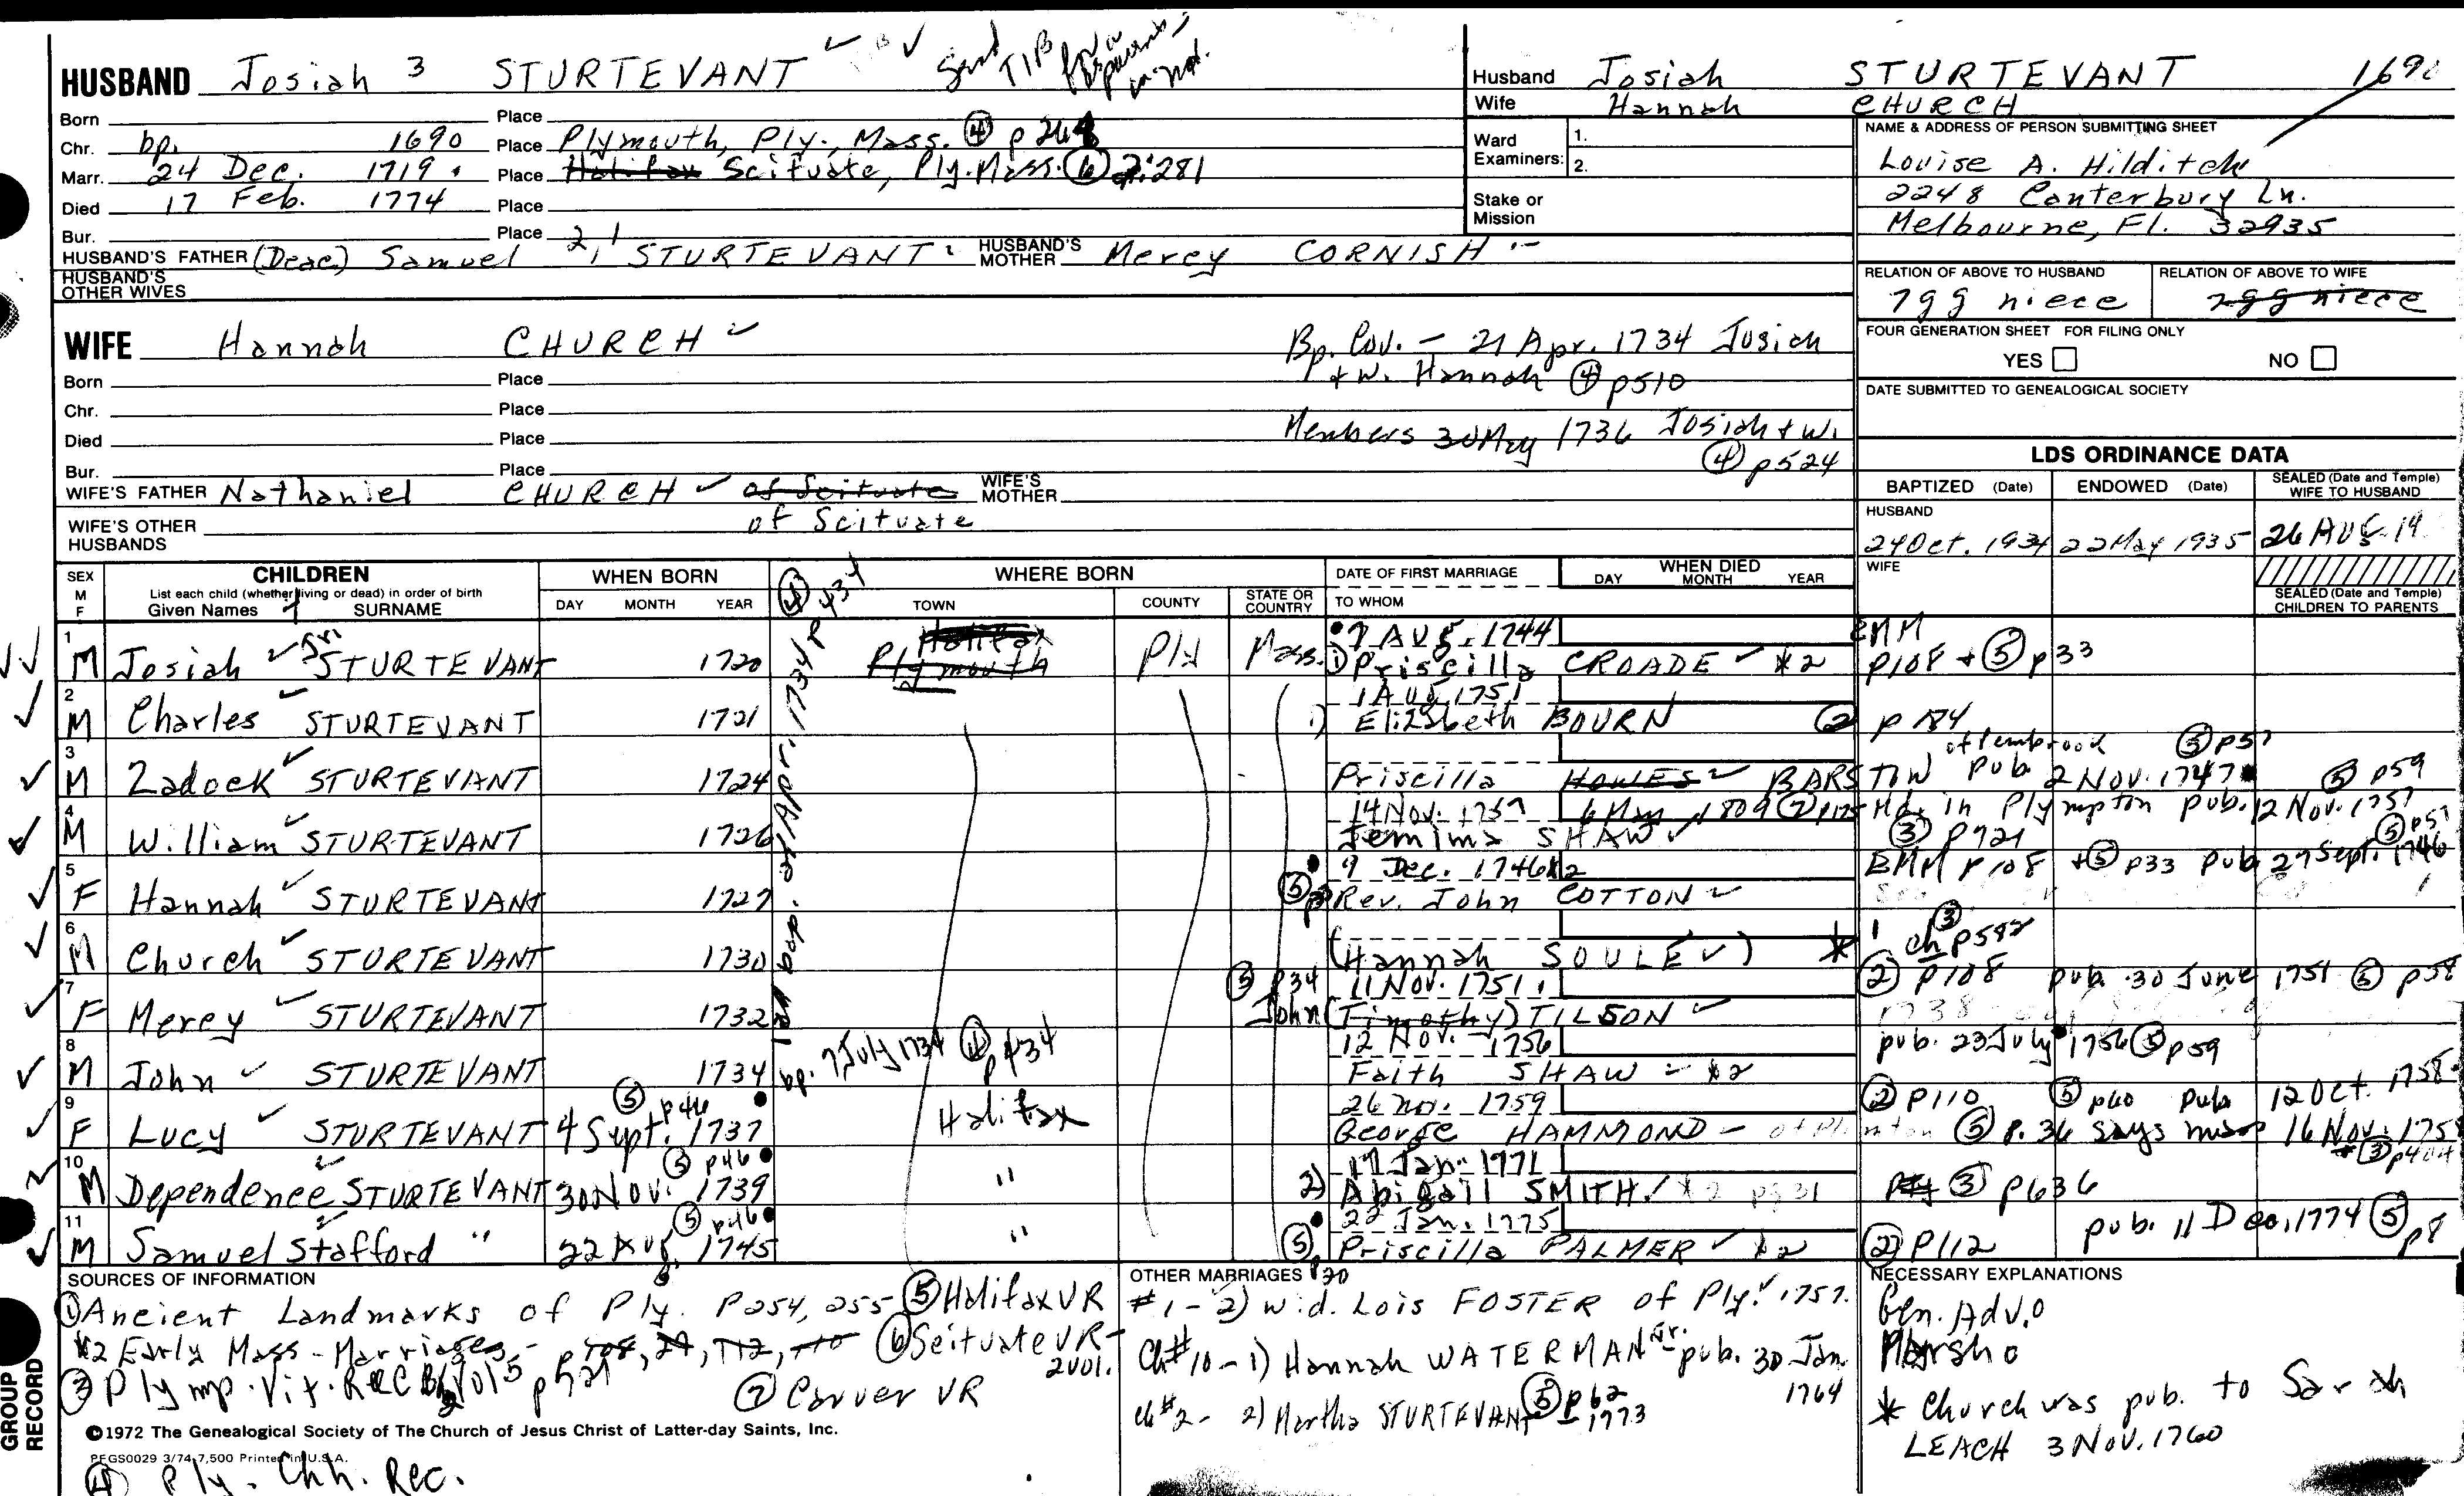 HUSBAND Josiah 3 STURTEVANT
Send TIB for a parents in not.
Born Place
Chr. bp. 1690 Place Plymouth, Ply., Mass. ④ p 264
Marr. 24 Dec. 1719 Place Halifax Scituate, Ply. Mass. ⑥ 2:281
Died 17 Feb. 1774 Place
Bur. Place
HUSBAND'S FATHER (Deac.) Samuel 2, 1 STURTEVANT HUSBAND'S MOTHER Mercy CORNISH
HUSBAND'S OTHER WIVES
Husband Josiah STURTEVANT 1690
Wife Hannah CHURCH
Ward Examiners: 1.
2.
Stake or Mission
NAME & ADDRESS OF PERSON SUBMITTING SHEET
Louise A. Hilditch
2248 Canterbury Ln.
Melbourne, Fl. 32935
RELATION OF ABOVE TO HUSBAND RELATION OF ABOVE TO WIFE
7gg niece 2gg niece
FOUR GENERATION SHEET FOR FILING ONLY
YES NO
DATE SUBMITTED TO GENEALOGICAL SOCIETY
WIFE Hannah CHURCH
Bp. Cov. - 21 Apr. 1734 Josiah
+ w. Hannah ④ p510
Born Place
Chr. Place
Members 30 May 1736 Josiah + w.
④ p524
Died Place
Bur. Place
WIFE'S FATHER Nathaniel CHURCH of Scituate WIFE'S MOTHER
of Scituate
WIFE'S OTHER HUSBANDS
LDS ORDINANCE DATA
BAPTIZED (Date) ENDOWED (Date) SEALED (Date and Temple) WIFE TO HUSBAND
HUSBAND
24 Oct. 1934 22 May 1935 26 AUG 19
WIFE
SEALED (Date and Temple) CHILDREN TO PARENTS
SEX M F CHILDREN
List each child (whether living or dead) in order of birth
Given Names SURNAME
WHEN BORN
DAY MONTH YEAR
WHERE BORN
TOWN COUNTY STATE OR COUNTRY
DATE OF FIRST MARRIAGE
TO WHOM
WHEN DIED
DAY MONTH YEAR
④ p 434
all bap. 21 Apr. 1734
1 M Josiah Jr. STURTEVANT 1720 Halifax Plymouth Ply Mass. 7 AUG. 1744
1) Priscilla CROADE *2 EMM p108 + ⑤ p33
2 M Charles STURTEVANT 1721 1 AUG. 1751
1) Elizabeth BOURN ② p 184
3 M Zadock STURTEVANT 1724 Priscilla HOWES BARSTOW of Pembrook ⑤ p57 pub 2 Nov. 1747 ⑤ p59
4 M William STURTEVANT 1726 14 Nov. 1757 6 May 1809 ⑦ p175 Hd. in Plympton pub. 12 Nov. 1757
Jemima SHAW ③ p421 ⑤ p57
5 F Hannah STURTEVANT 1727 9 Dec. 1746 *2
⑤ Rev. John COTTON EMM p 108 + ⑤ p33 pub 27 Sept. 1746
6 M Church STURTEVANT 1730 (Hannah SOULE) * ③ ch p592
7 F Mercy STURTEVANT 1732 ⑤ p34 11 Nov. 1751
John (Timothy) TILSON ② p108 pub. 30 June 1751 ⑤ p58
8 M John STURTEVANT 1734 bp. 7 July 1734 ④ p434 12 Nov. 1756
Faith SHAW *2 pub. 23 July 1756 ⑤ p59
9 F Lucy STURTEVANT 4 Sept. 1737 ⑤ p46 Halifax 26 Nov. 1759
George HAMMOND - of Plimton ② p110 ⑤ p60 pub 12 Oct. 1758
⑤ p. 36 says 16 Nov. 175
③ p404
10 M Dependence STURTEVANT 30 Nov. 1739 ⑤ p46 " 17 Jan. 1771
2) Abigail SMITH *2 pg 31 ③ p636
11 M Samuel Stafford " 22 Aug. 1745 ⑤ p46 " 22 Jan. 1775
⑤ p30 Priscilla PALMER *2 ② p112 pub. 11 Dec. 1774 ⑤ p8
SOURCES OF INFORMATION
① Ancient Landmarks of Ply. p254, 255 ⑤ Halifax VR
*2 Early Mass. Marriages - 108, 24, 112, 110 ⑥ Scituate VR - 2 vol.
③ Plymp. Vit. Rec p421 ⑦ Carver VR
©1972 The Genealogical Society of The Church of Jesus Christ of Latter-day Saints, Inc.
PFGS0029 3/74 7,500 Printed in U.S.A.
④ Ply. Chh. Rec.
OTHER MARRIAGES
#1 - 2) wid. Lois FOSTER of Ply. 1757.
Ch#10 - 1) Hannah WATERMAN Jr. pub. 30 Jan 1764
ch#2 - 2) Martha STURTEVANT ⑤ p62 - 1773
NECESSARY EXPLANATIONS
Gen. Adv.
* Church was pub. to Sarah
LEACH 3 Nov. 1760
GROUP RECORD